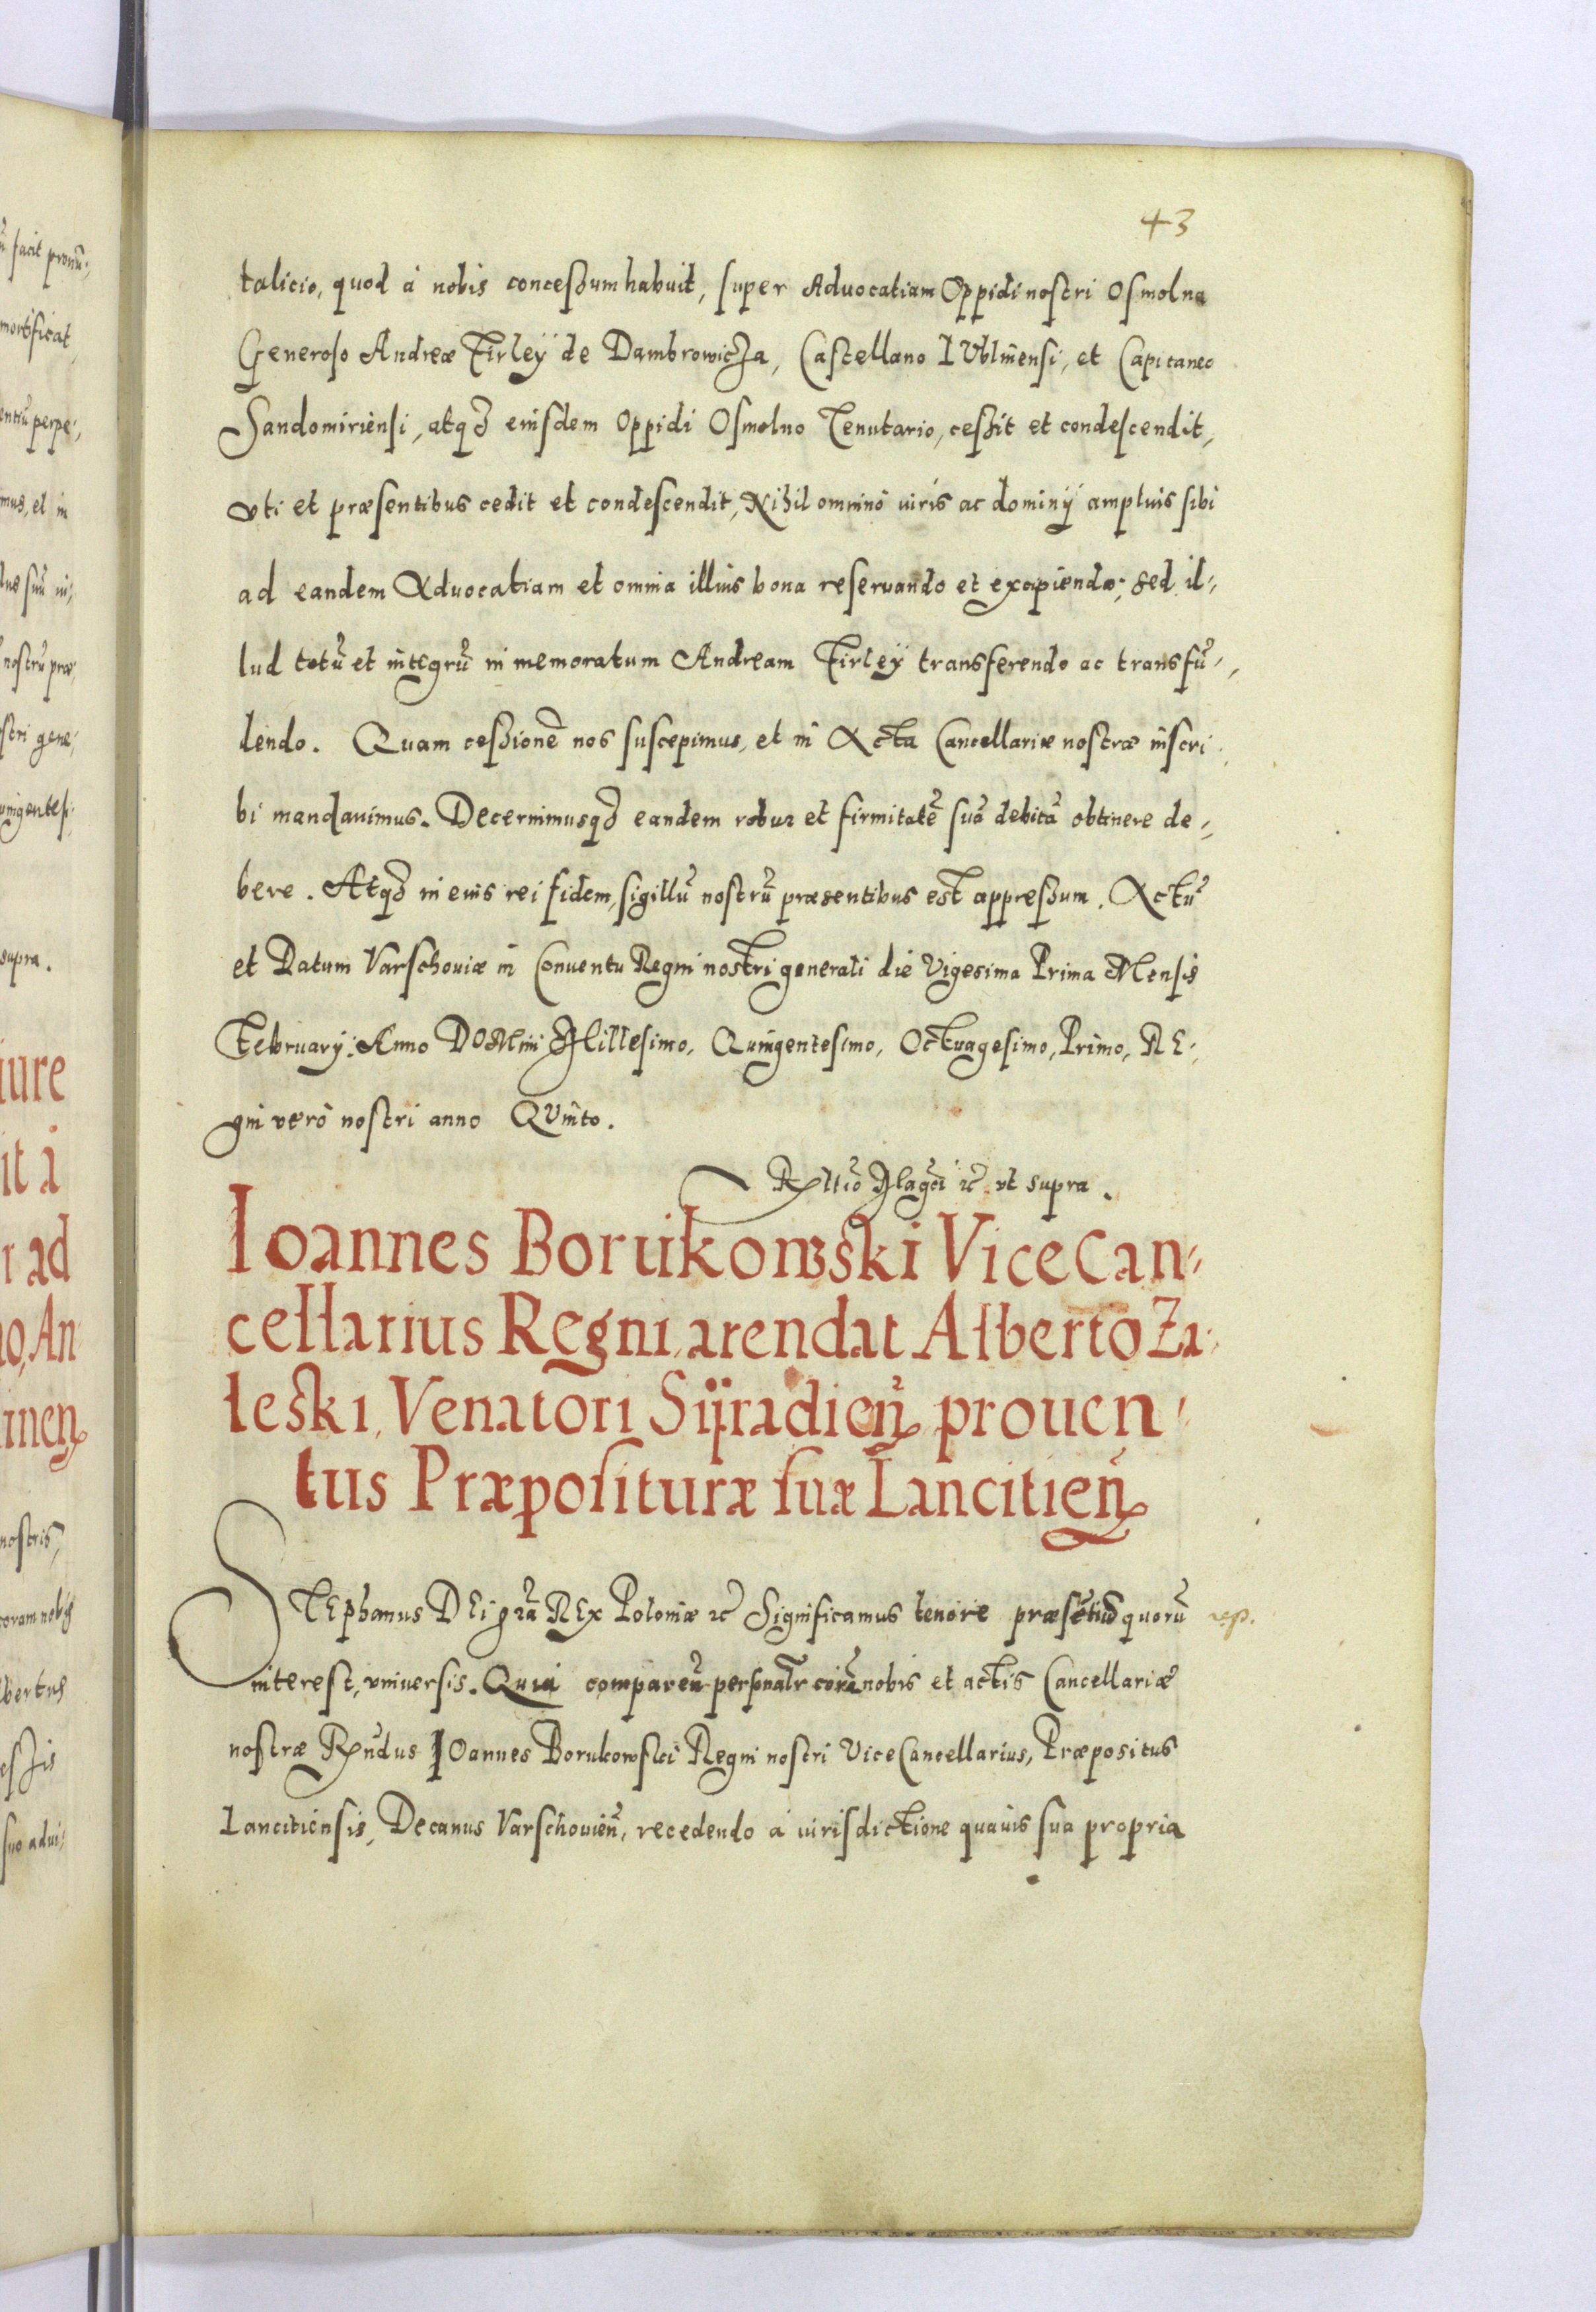 43
talicio, quod á nobis concessum habuit, super Aduocatiam Oppidi nostri Osmolna
Generoso Andreæ Firleÿ de Dambrowicza, Castellano LVblinensi, et Capitaneo
Sandomiriensi, atq₃ eiusdem Oppidi Osmolno Tenutario, cessit et condescendit,
vti et præsentibus cedit et condescendit, Nihil omninò iuris ac dominÿ amplius sibi
ad eandem Aduocatiam et omnia illius bona reseruando et excipiendo; sed il-
lud totũ et integrũ in memoratum Andream Firleÿ transferendo ac transfũ-
dendo. Quam cessionẽ nos suscepimus, et in Acta Cancellariæ nostræ inscri
bi mandauimus. Decernimusq₃ eandem robur et firmitatẽ suã debitã obtinere de-
bere. Atq₃ in eius rei fidem, sigillũ nostrũ præsentibus est appressum. Actũ
et Datum Varschouiæ in Conuentu Regni nostri generali die Vigesima Prima Mensis
Februarÿ: Anno DOMini Millesimo, Quingentesimo, Octuagesimo, Primo, RE-
gni verò nostri anno QVinto.
Rltĩo Mag̃ci ꝛc̃ vt supra.
Ioannes Borukowski ViceCan-
cellarius Regni, arendat Alberto Za-
leski, Venatori Sÿradien̄, prouen-
tus Præposituræ suæ Lancitien̄
STEphanus DEi gr̃a REx Poloniæ ꝛc̃ Significamus tenore præsẽtiũ quorũ
interest, vniuersis. Quia comparen̄ personalr̃ corã nobis et actis Cancellariæ
nostræ Rn̄dus IOannes Borukowski Regni nostri ViceCancellarius, Præpositus
Lancitiensis, Decanus Varschouien̄, recedendo á iurisdictione quauis sua propria